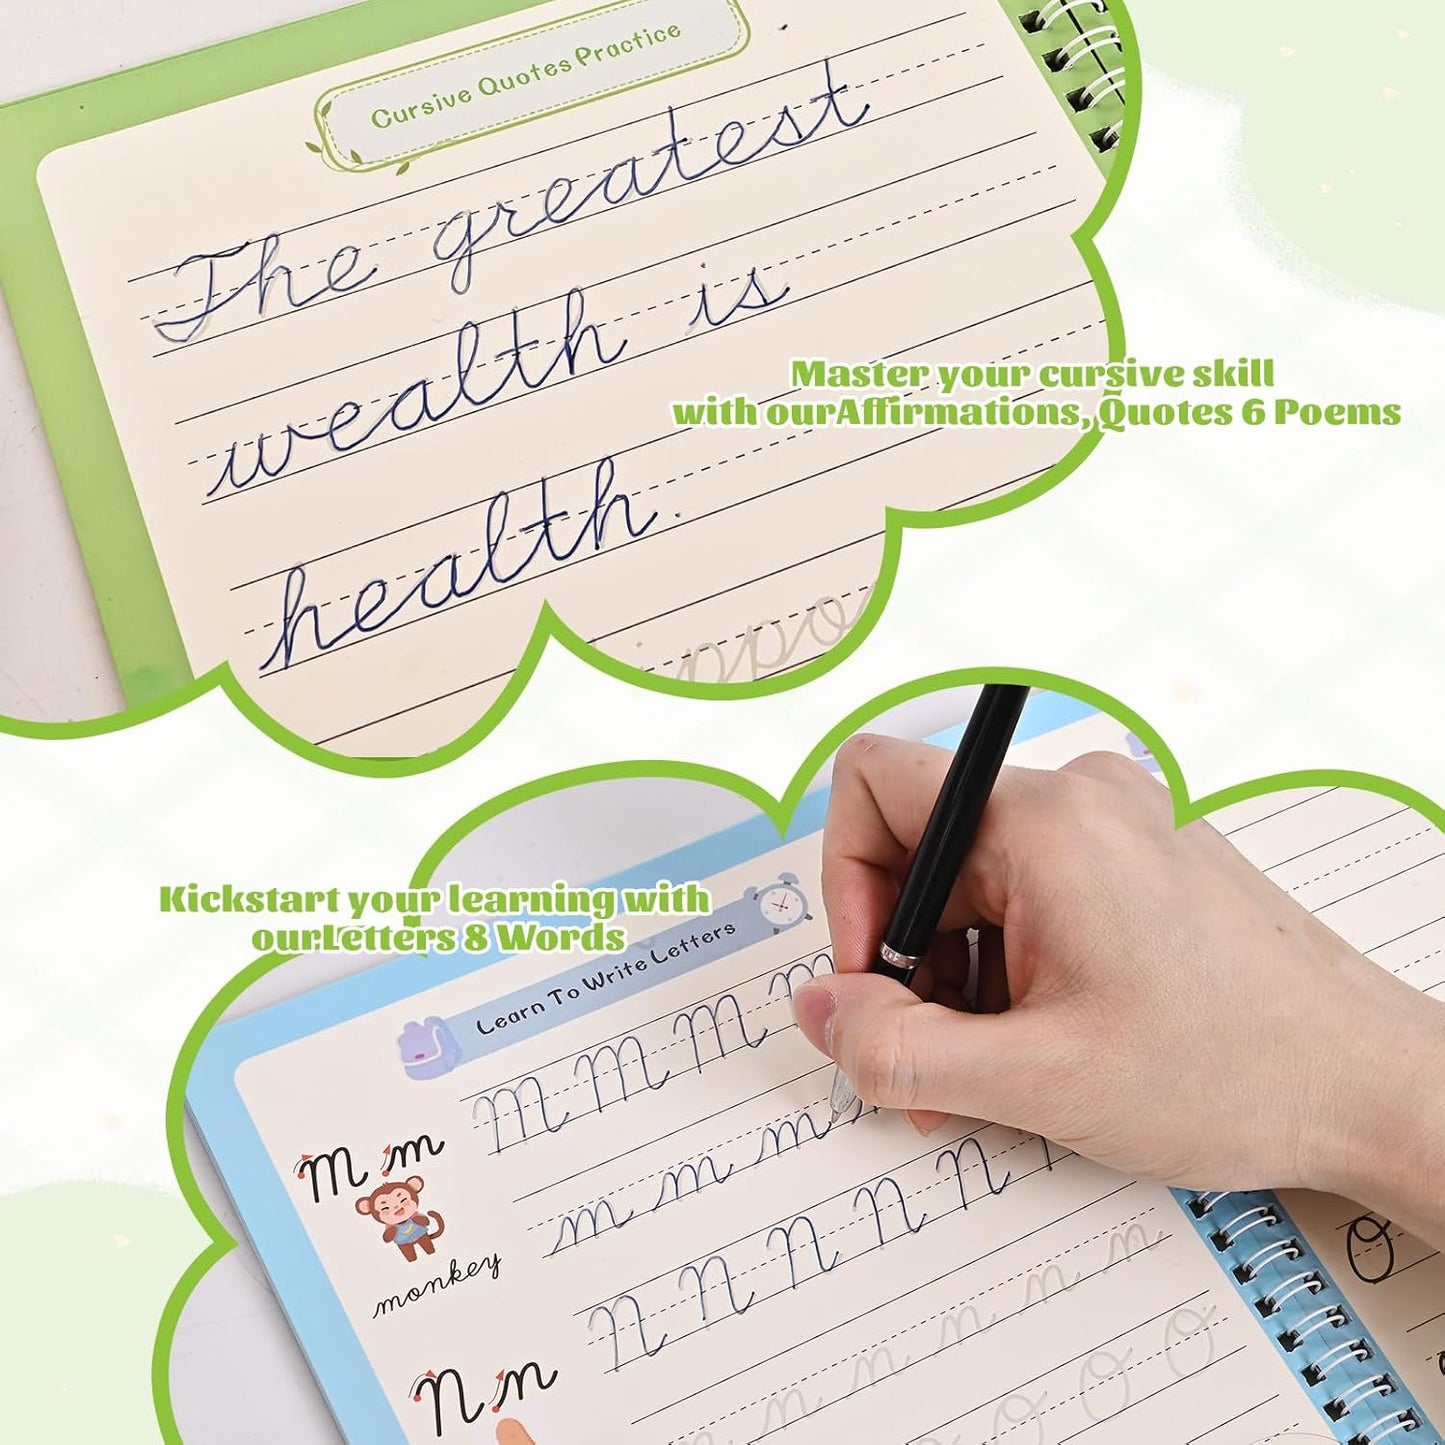 Cursive Quotes Practice
The greatest
wealth is
health.
ippo
Master your cursive skill
with ourAffirmations, Quotes 6 Poems
Kickstart your learning with
ourLetters 8 Words
Learn To Write Letters
M m
M M M M
m m m
monkey
N n
N N N N
n n n n
O O O
O